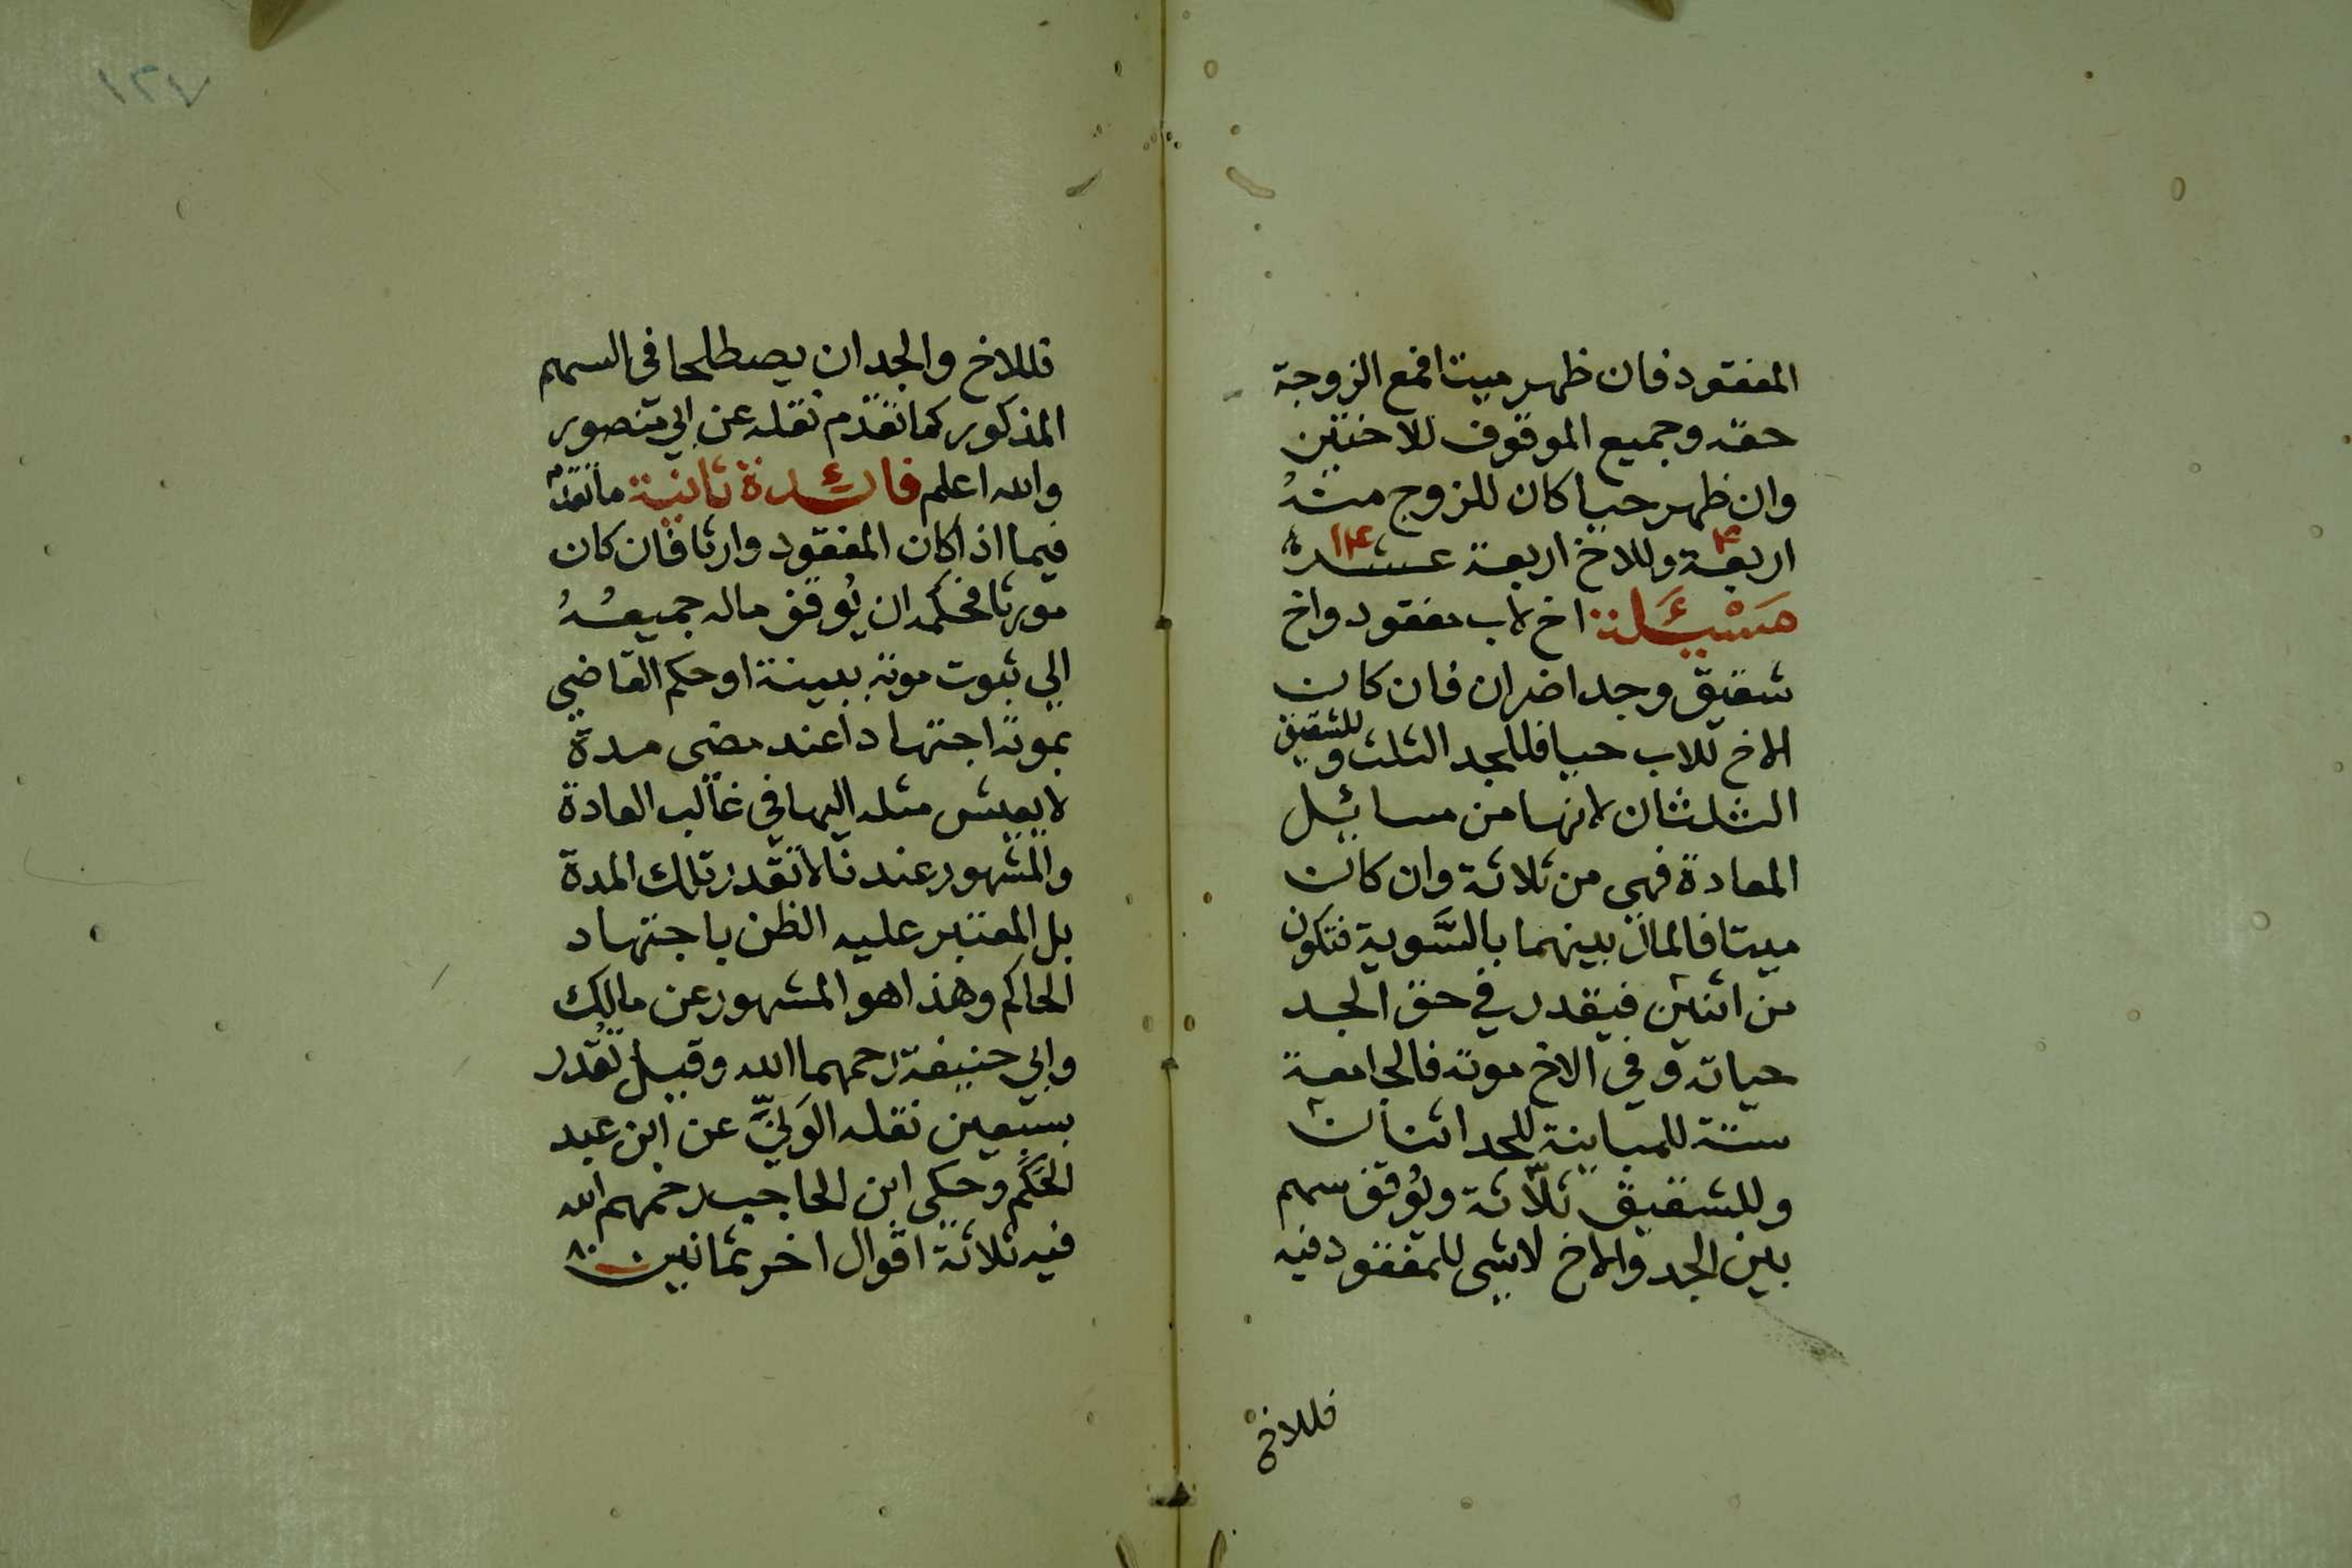 المفقود فان ظهر ميتا فمع الزوجة
حقه وجميع الموقوف للاختين
وان ظهر حيا كان للزوج منه
٤ ١٤
اربعة وللاخ اربعة عشرة
مَسْئَلة اخ لاب مفقود واخ
شقيق وجد حاضران فان كان
الاخ للاب حيا فللجد الثلث وللشقيق
الثلثان لانها من مسائل
المعادة فهي من ثلاثة وان كان
ميتا فالمال بينهما بالسَّوية فتكون
من اثنين فيقدر في حق الجد
حياته وفي الاخ موته فالجامعة
ستة للمباينة للجد اثنان
وللشقيق ثلاثة ويُوقف سهم
بين الجد والاخ لا شي للمفقود فيه
فللاخ
١٢٧
فللاخ والجد ان يصطلحا في السهم
المذكور كما تقدم نقله عن ابي منصور
والله اعلم فائدة ثانية ما تقدم
فيما اذا كان المفقود وارثا فان كان
مورثا فحكمه ان يُوقف ماله جميعُهُ
الي ثبوت موته ببينة او حكم القاضي
بموته اجتهادا عند مضى مدة
لا يعيش مثله اليها في غالب العادة
والمشهور عندنا لا تقدر تلك المدة
بل المعتبر عليه الظن باجتهاد
الحاكم وهذا هو المشهور عن مالك
وابي حنيفة رحمهما الله وقيل تُقدر
بسبعين نقله الوَنِّيّ عن ابن عبد
الحَكَم وحكى ابن الحاجب رحمهم الله
فيه ثلاثة اقوال اخر ثمانين ٨٠